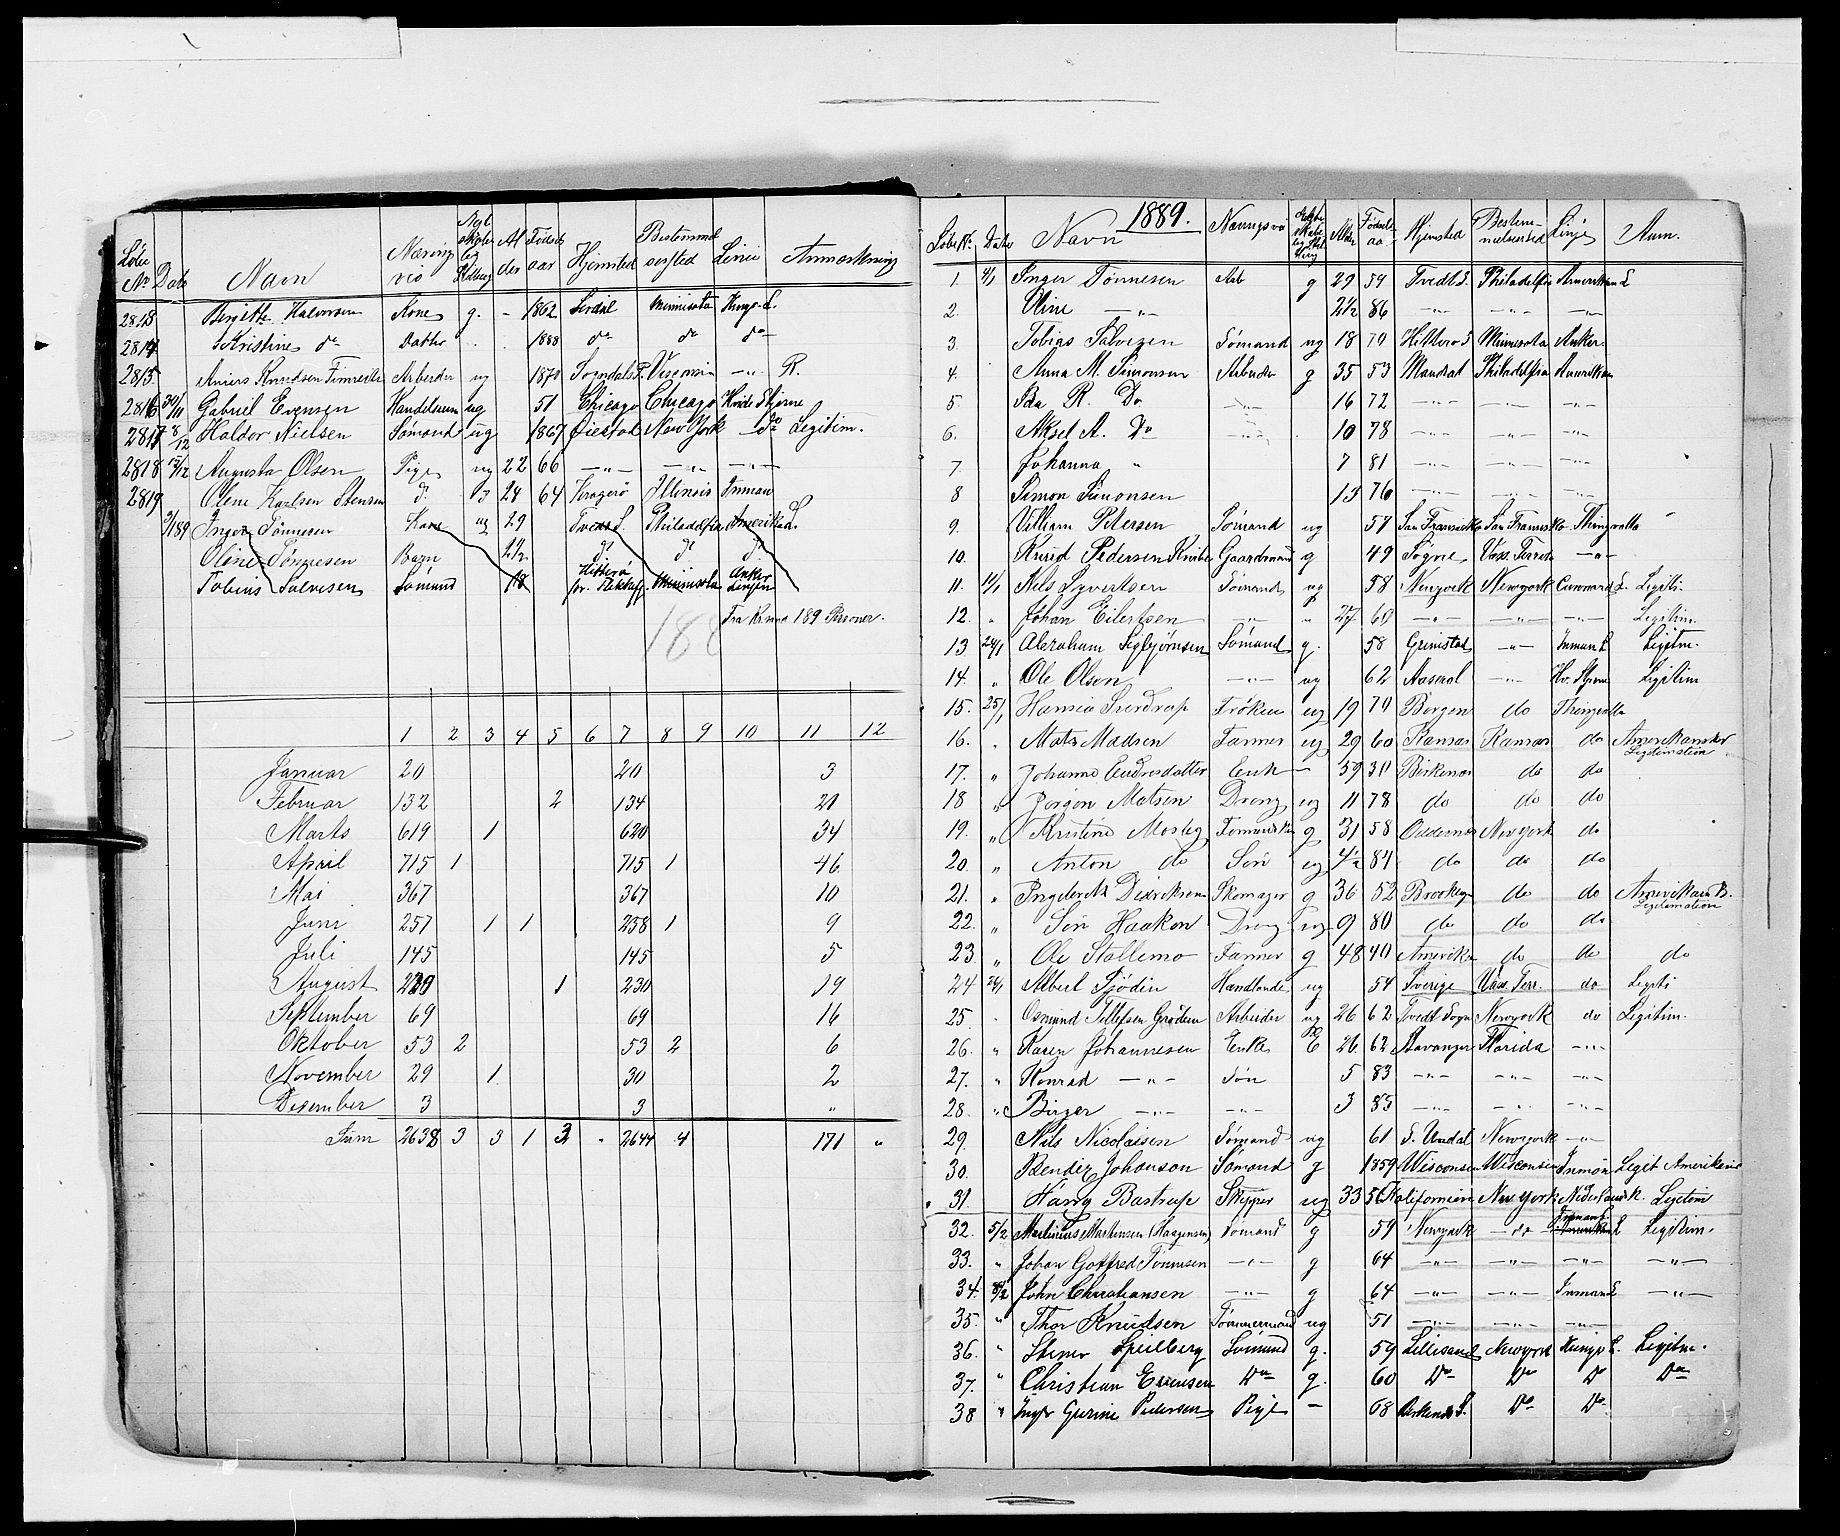 Løbe No Dato Navn Næringsvei Ægteskabelig Stilling Alder Fødselsaar Hjemsted Bestemmelsessted Linie Anmærkning
2813 Birgitte Halvorsen Kone g. - 1862 Sirdal Minnisota Kings L.
2814 Kristine do Datter 1888 do do do
2815 Anders Knudsen Arbeider ug 1870 Sogndal S. Visconsin -"- R.
2816 30/11 Gabriel Evensen Handelsm ug 51 Chicago Chicago Hvide Stjerne
2817 8/12 Haldor Nielsen Sømand ug 1867 Øiestad New York do Legitim.
2818 15/12 Augusta Olsen Pige ug 22 66 -"- -"- -"-
2819 Olene Karlsen Stensen d. 24 64 Kragerø Illinois Inman
2/1 89 Inger Tønnesen Kone ug 29 Tvedt S. Philadelfia Amerika L.
Oline Tønnesen Barn 2 1/2 d. d. d.
Tobias Salvesen Sømand 18 Hitterø pr. Flekkefj Minnisota Anker Linjen
Fra Kr.sand 189 Personer.
188
1 2 3 4 5 6 7 8 9 10 11 12
Januar 20 20 3
Februar 132 2 134 21
Marts 619 1 620 34
April 715 1 715 1 46
Mai 367 367 10
Juni 257 1 1 258 1 9
Juli 145 145 5
August 229 1 230 19
September 69 69 16
Oktober 53 2 53 2 6
November 29 1 30 2
Desember 3 3 "
Sum 2638 3 3 1 3 " 2644 4 171 "
1889.
Løbe No. Dato Navn Næringsvei Alder Fødselsaar Hjemsted Bestemmelsessted Linje Anm.
1. 4/1 Inger Tønnesen Arb g 29 59 Tvedt S. Philadelfia Amerikan L
2. Oline -"- 2 1/2 86 -"- -"- -"-
3. Tobias Salvesen Sømand ug 18 70 Hitterø S Minnisota Anker.
4. Anna M. Simonsen Arbeider g 35 53 Mandal Philadelfia Amerikan
5. Ida R. Do -"- 16 72 -"- -"- -"-
6. Aksel A. Do -"- 10 78 -"- -"- -"-
7. Johanna " 7 81 -"- -"- -"-
8 Simon Simonsen 13 76 -"- -"- -"-
9. Villiam Petersen Sømand ug 57 San Fransisko San Fransisko Thingvalla
10. Knud Pedersen Knibe Gaardmand g 49 Søgne Vass. Terr. -"-
11. 11/1 Nils Syvertsen Sømand ug 58 Newyork Newyork Cunnard L. Legiti.
12. " Johan Eilertsen " " 27 60 -"- -"- -"- Legitim.
13 24/1 Abraham Sigbjørnsen Sømand g. 58 Grimstad -"- Inman L Legitm.
14. " Ole Olsen -"- ug 62 Aaseral -"- Hv. Stjerne Legitim
15. 25/1 Hansea Sverdrup Frøken ug 19 70 Bergen do Thingvalla
16. " Mats Madsen Farmer ug 29 60 Kansas Kansas do Amerikansker Legitimation
17. " Johanne Endresdatter Enke - 59 30 Birkenæs do do
18 " Jørgen Matsen Dreng ug 11 78 do do do
19. " Kristine Mosby g 31 58 Oddernes Newyork do
20. " Anton do Søn ug 4 1/2 84 do do do
21. " Ingebret Didriksen Skomager g 36 52 Brooklyn do do Amerikansk. Legitimation
22. " Søn Haakon Dreng ug 9 80 do do do
23. " Ole Stallemo Farmer g 48 40 Amerika do do do
24 26/1 Albert Sjødin Handlende ug 54 Sverige Vass. Terr. do Legiti
25. " Osmund Tellefsen Arbeider ug 26 62 Tvedt Sogn Newyork do Legitim.
26. " Karen Johannesen Enke E 26 62 Stavanger Florida -"-
27. " Konrad -"- Søn 5 83 -"- -"- -"-
28. " Birger -"- -"- 3 85 -"- -"- -"-
29. Nils Nicolaisen Sømand ug 61 S. Undal Newyork -"-
30. Bendix Johanson Sømand g 1859 Wisconsen Wisconsen Inman Legit Amerikansk
31. Harry Bastrup Skipper ug 33 56 Kalifornien New York Nederlandsk. Legitim
32. 5/2 Martinius Martensen (Haagensen) Sømand g 59 Newyork -do Inman L Legitim.
33. " Johan Gotfred Tønnesen -"- g 64 -"- -"- -"- -"-
34. 8/2 John Christiansen -"- g 64 -"- -"- Inman L -"-
35. " Thor Knudsen Tømmermand ug 51 -"- -"- -"-
36. " Stener Speilberg Sømand g. 59 Lillesand Newyork Kings L. Legitm.
37. " Christian Evensen Do g. 60 Do Do Do Do
38 " Inger Gurine Pedersen Pige - 68 Birkenes S. Do Do